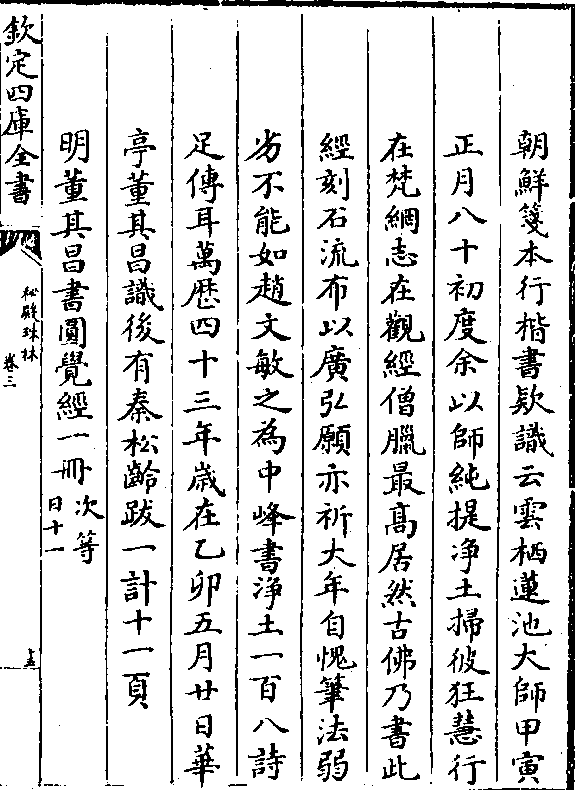 朝鮮箋本行楷書欵識云雲栖蓮池大師甲寅
正月八十初度余以師純提浄土掃彼狂慧行
在梵綱志在觀經僧臘最髙居然古佛乃書此
經刻石流布以廣弘願亦祈大年自愧筆法弱
劣不能如趙文敏之為中峰書浄土一百八詩
足傳耳萬歴四十三年嵗在乙卯五月廿日華
亭董其昌識後有秦松齡跋一計十一頁
明董其昌書圓覺經一冊 次等
日十一
欽定四庫全書
秘殿珠林
卷三